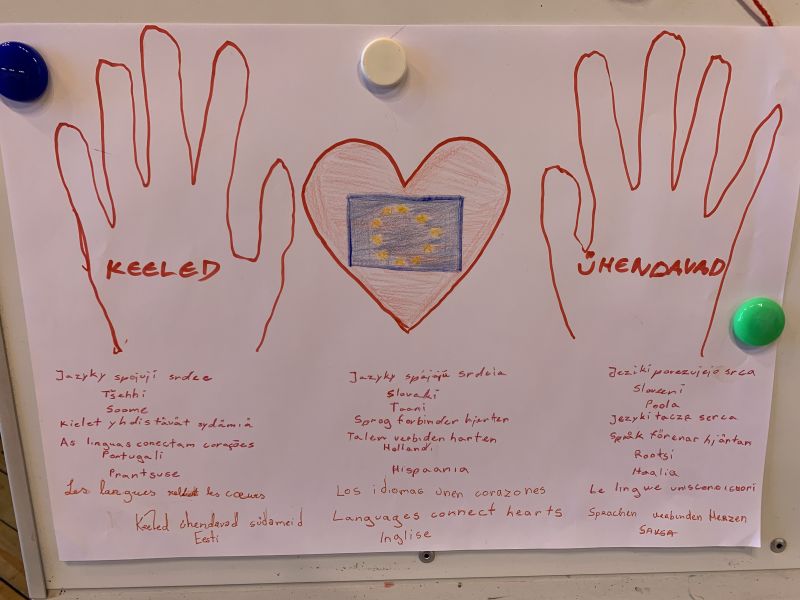 KEELED
ÜHENDAVAD
Jazyky spojují srdce
Tšehhi
Soome
Kielet yhdistävät sydämiä
As linguas conectam corações
Portugali
Prantsuse
Les langues les cœurs
Keeled ühendavad südameid
Eesti
Jazyky spájajú srdcia
Slovaki
Taani
Sprog forbinder hjerter
Talen verbiden harten
Hollandi
Hispaania
Los idiomas unen corazones
Languages connect hearts
Inglise
Jeziki povezujejo srca
Sloveeni
Poola
Języki łączą serca
Språk förenar hjärtan
Rootsi
Itaalia
Le lingue uniscono i cuori
Sprachen verbinden Herzen
SAKSA